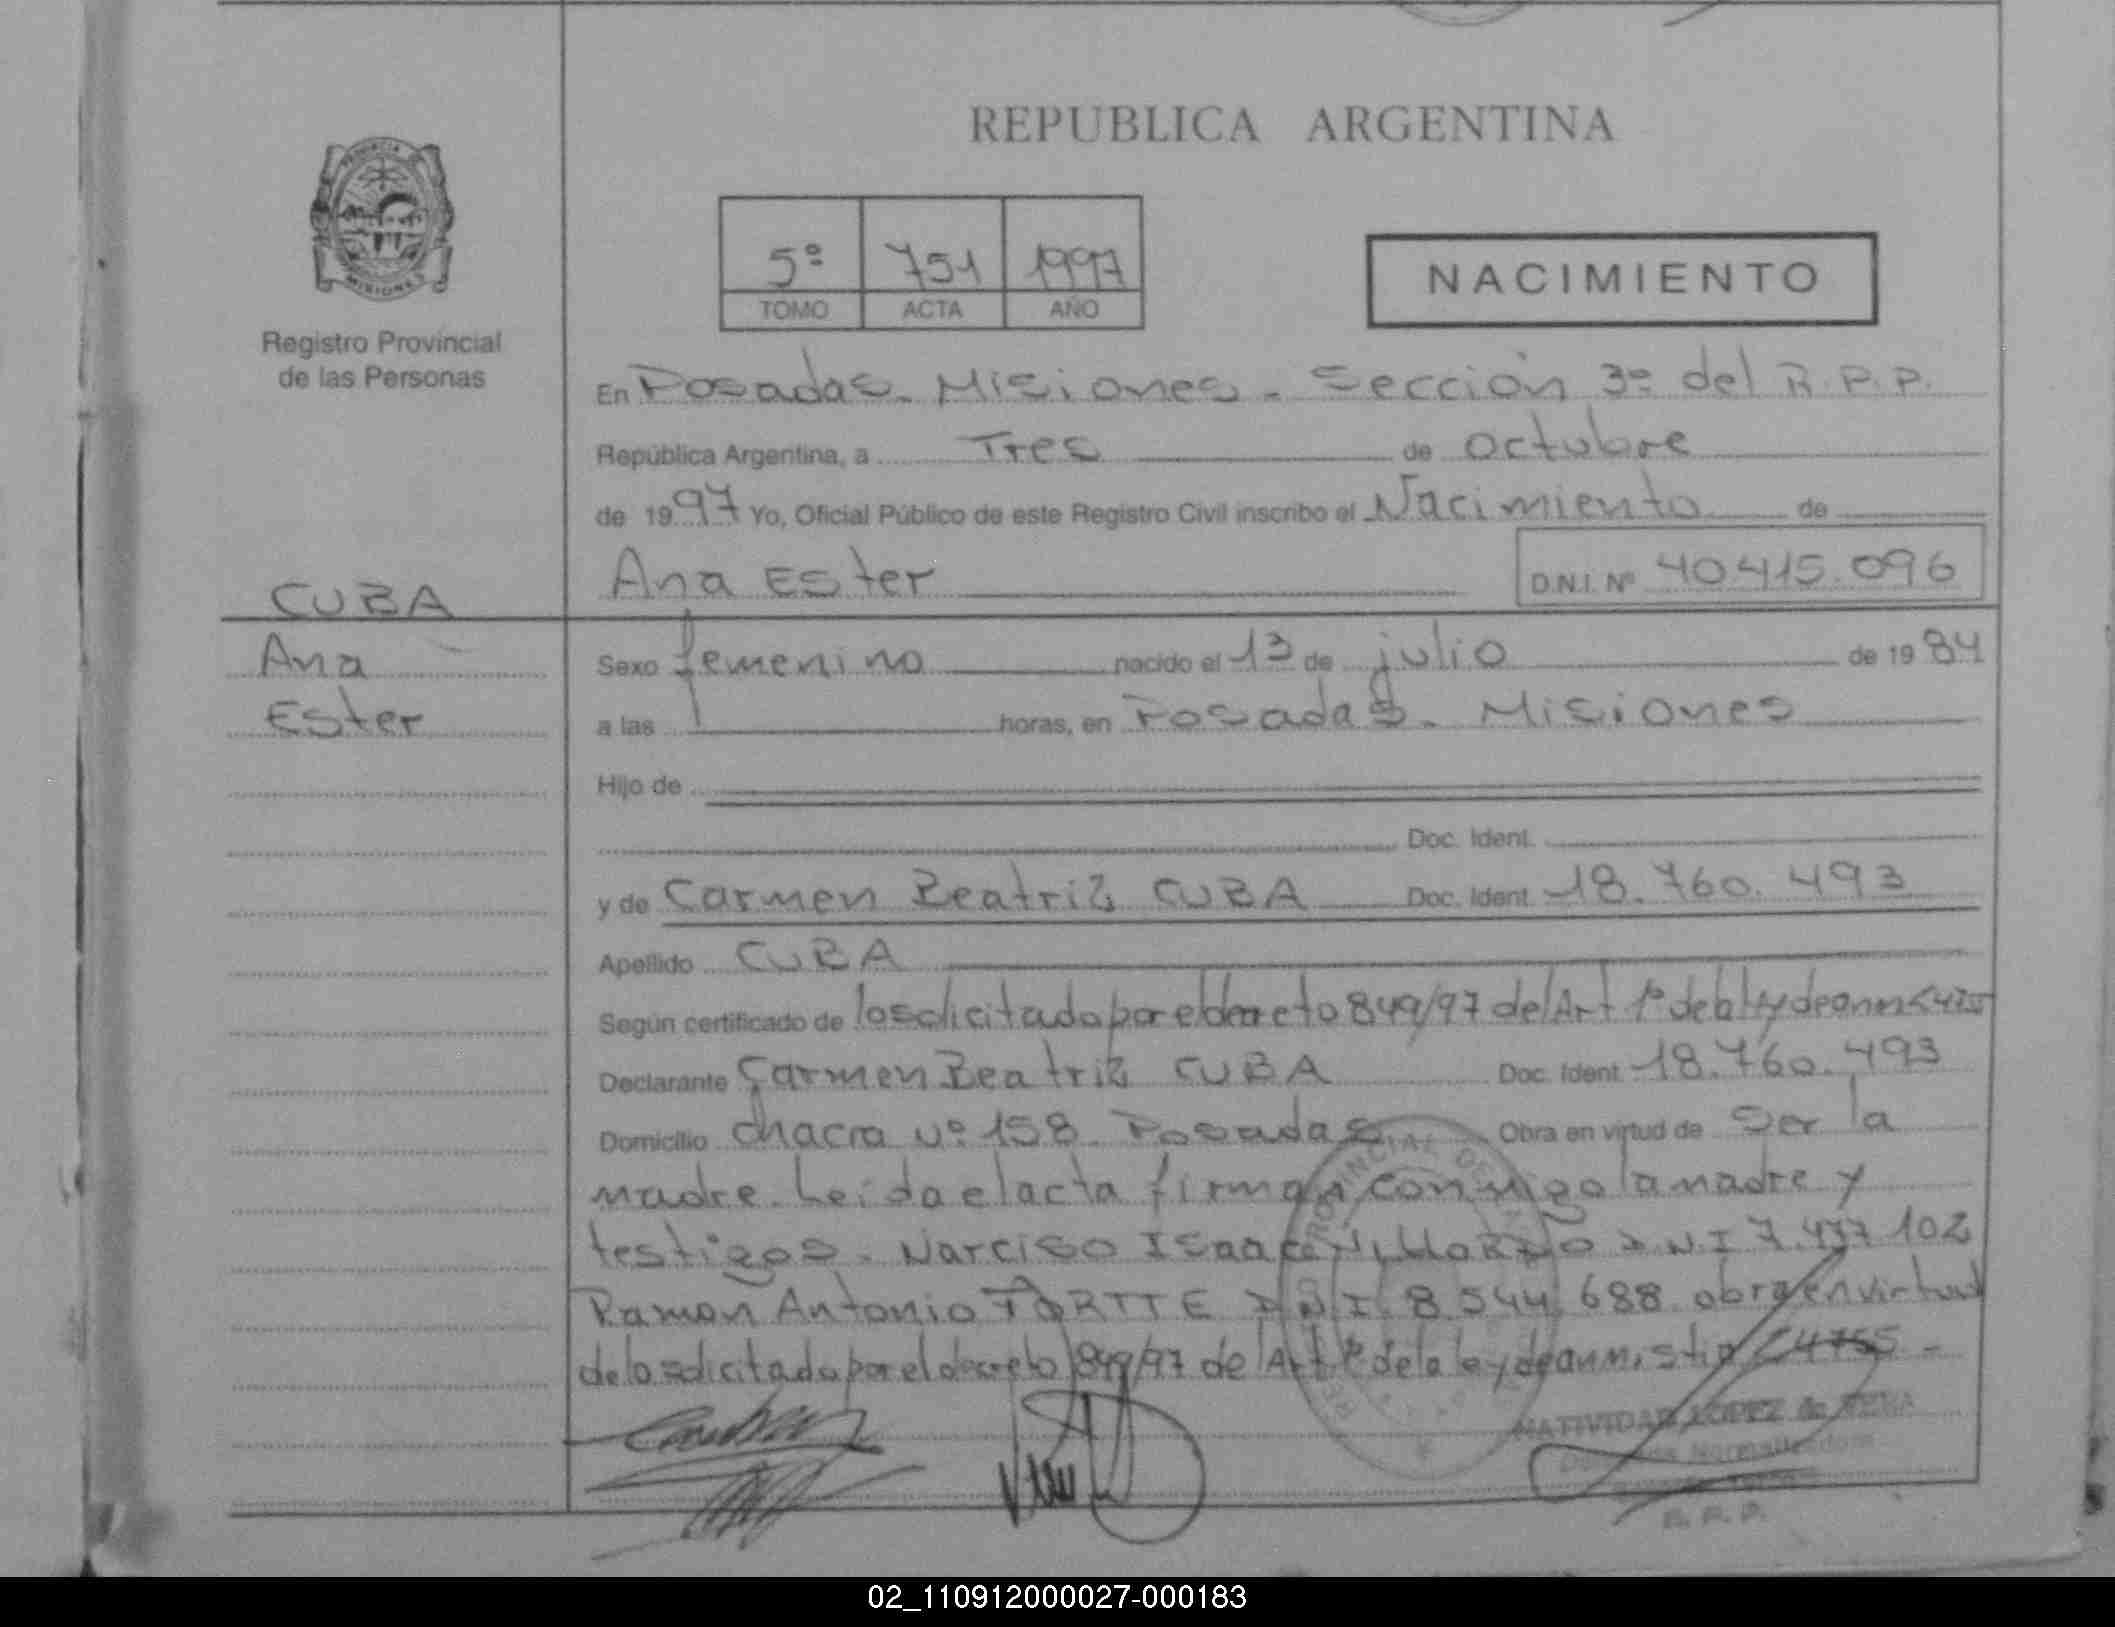 REPUBLICA ARGENTINA
PROVINCIA DE
MISIONES
Registro Provincial
de las Personas
5º 751 1997
TOMO ACTA AÑO
NACIMIENTO
En Posadas. Misiones. Sección 3º del R.P.P.
República Argentina, a Tres de octubre
de 1997 Yo, Oficial Público de este Registro Civil inscribo el Nacimiento de
Ana Ester D.N.I. Nº 40415.096
CUBA
Ana
Ester
Sexo femenino nacido el 13 de julio de 1984
a las horas, en Posadas. Misiones
Hijo de
Doc. Ident.
y de Carmen Beatriz CUBA Doc. Ident. 18.760.493
Apellido CUBA
Según certificado de lo solicitado por el decreto 849/97 del Art 1º de la ley de
Declarante Carmen Beatriz CUBA Doc. Ident. 18.760.493
Domicilio chacra Nº 158. Posadas Obra en virtud de Ser la
madre. Leída el acta firman conmigo la madre y
testigos. Narciso Isaac D.N.I 7.477.102
Ramon Antonio D.N.I. 8.544.688 obra en virtud
de lo solicitado por el decreto 849/97 del Art 1º de la ley de amnistia 24755 -
NATIVIDAD LOPEZ de
R. P. P.
02_110912000027-000183